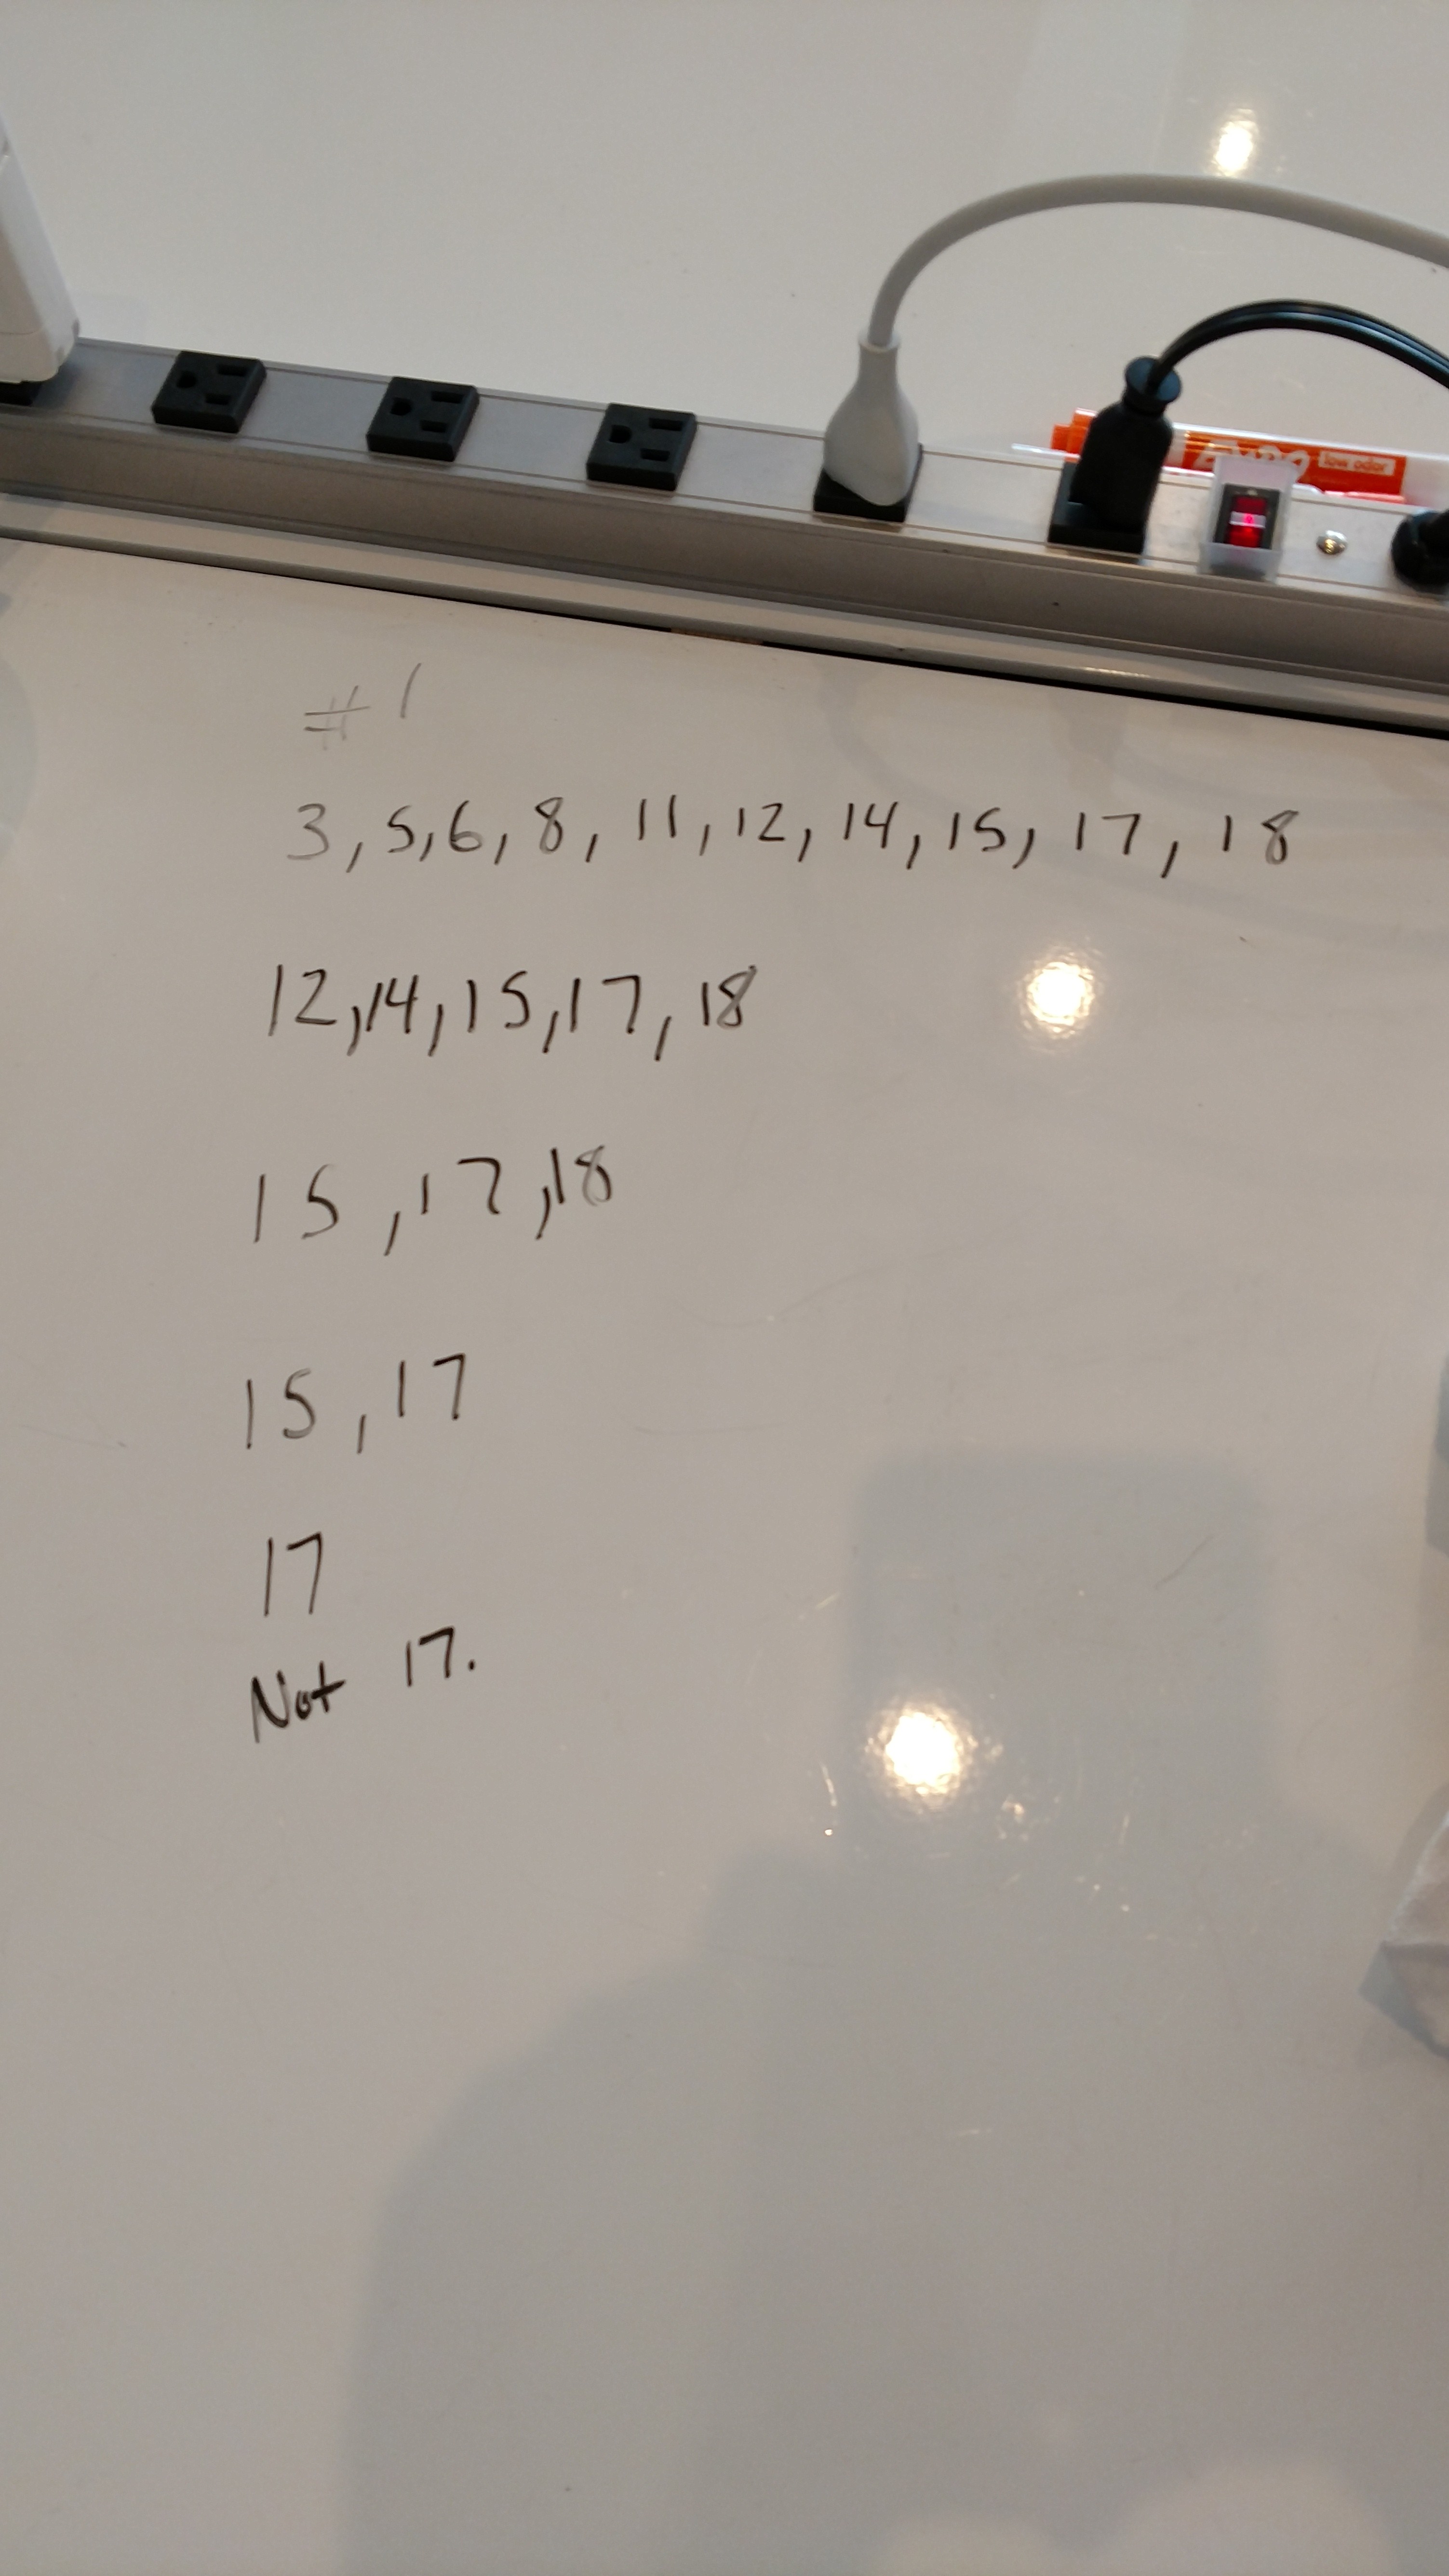 EXPO low odor
#1
3, 5, 6, 8, 11, 12, 14, 15, 17, 18
12, 14, 15, 17, 18
15, 17, 18
15, 17
17
Not 17.